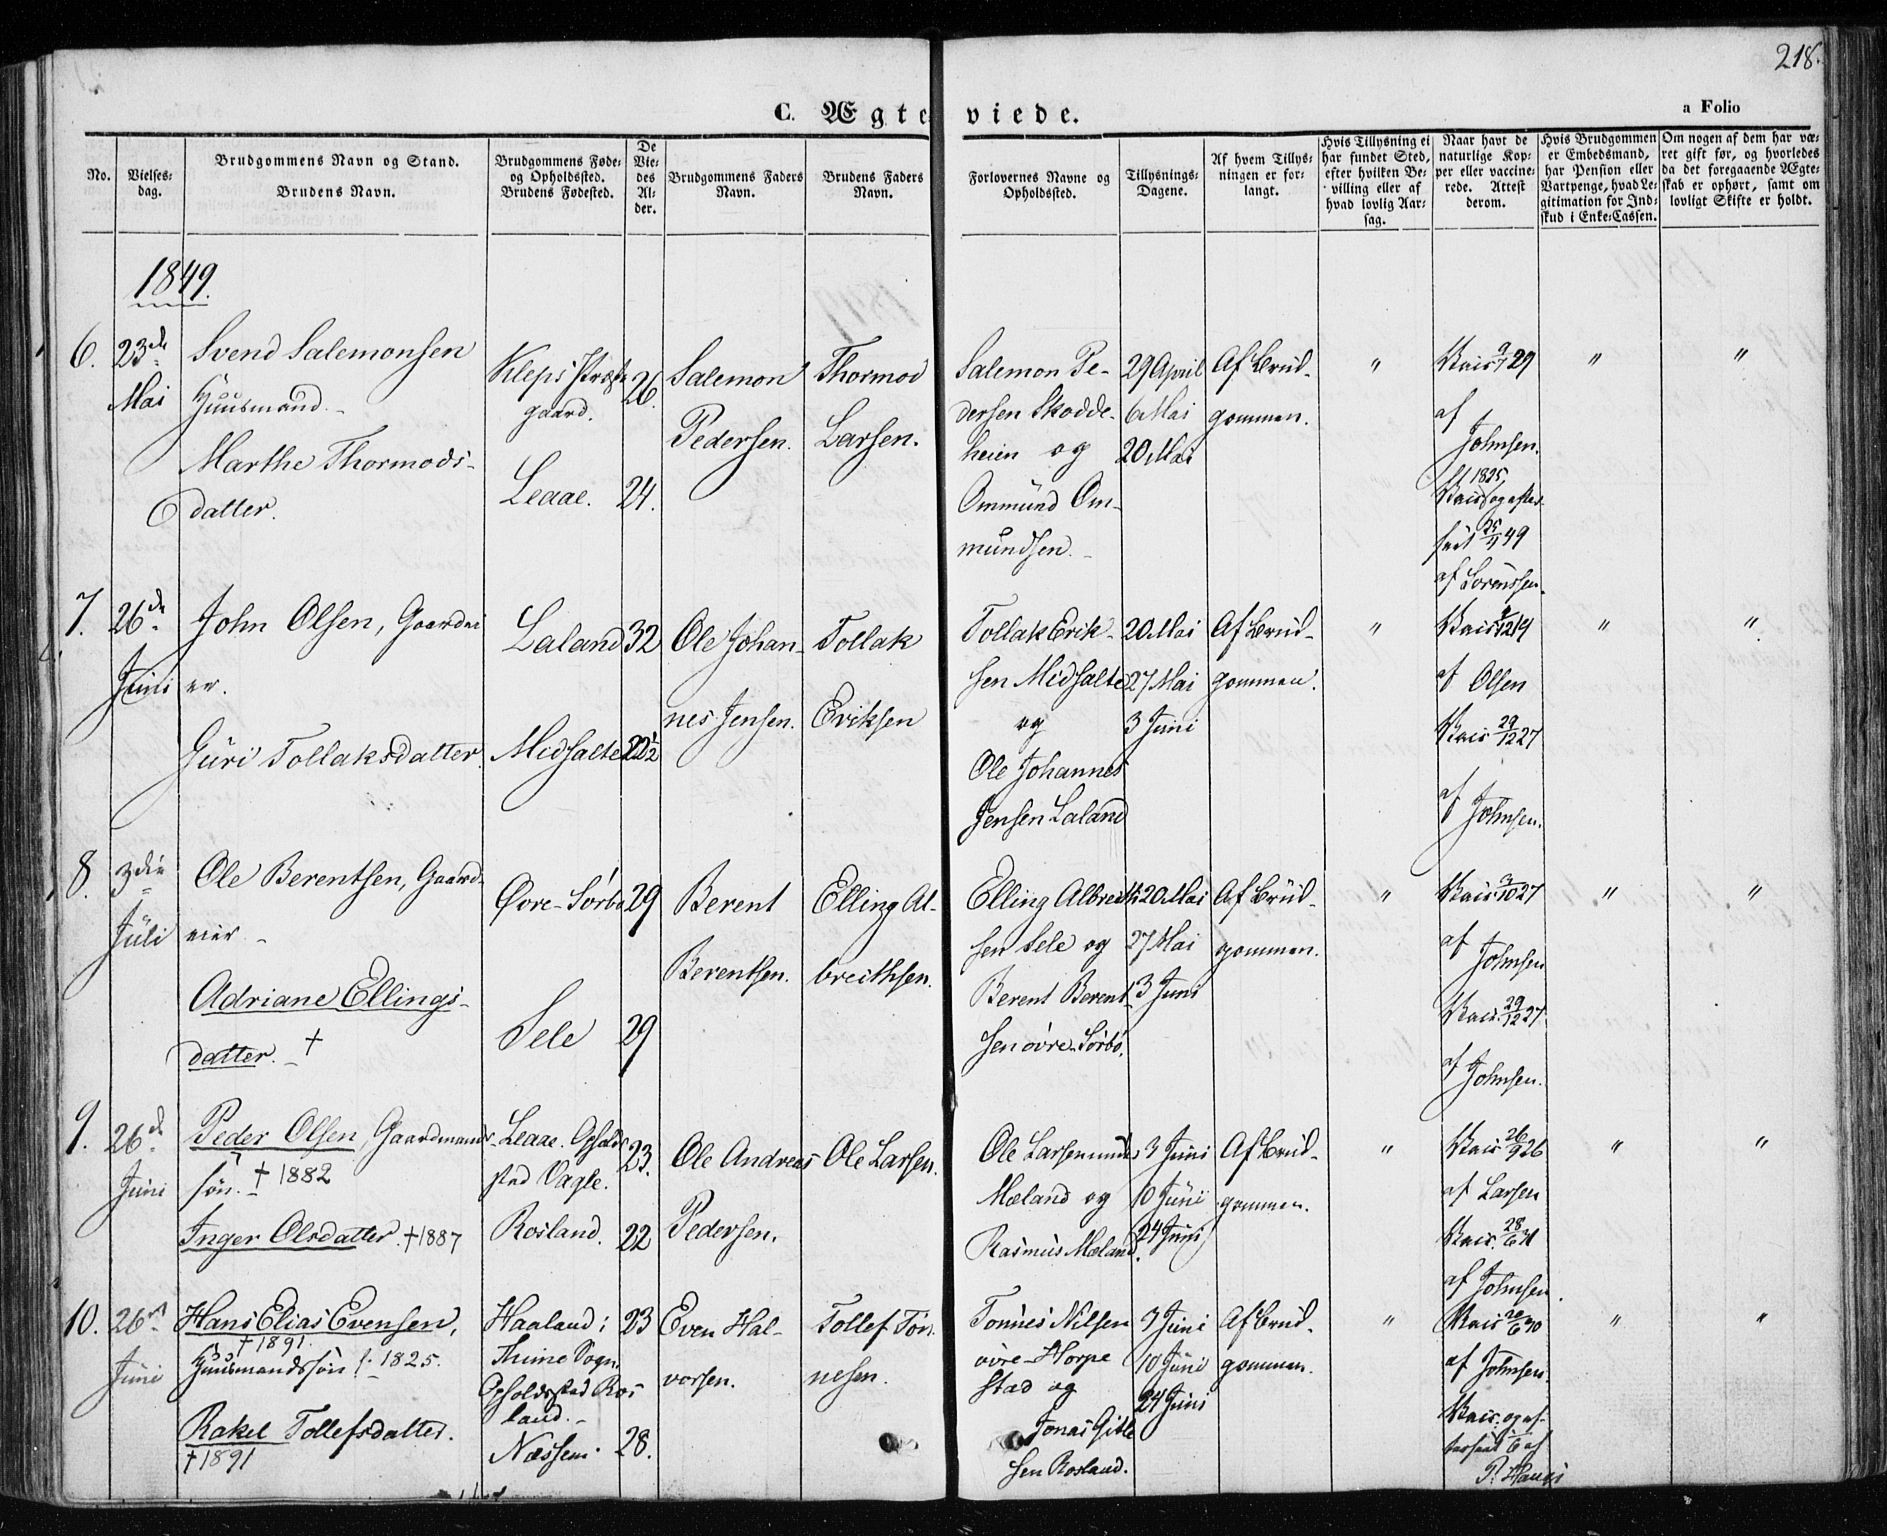 218.
C. Ægteviede.
a Folio
No.
Vielses-
dag.
Brudgommens Navn og Stand.
Brudens Navn.
Brudgommens Føde-
og Opholdssted.
Brudens Fødested.
De
Vie-
des
Al-
der.
Brudgommens Faders
Navn.
Brudens Faders
Navn.
Forlovernes Navne og
Opholdssted.
Tillysnings-
Dagene.
Af hvem Tillys-
ningen er for-
langt.
Hvis Tillysning ei
har fundet Sted,
efter hvilken Be-
villing eller af
hvad lovlig Aar-
sag.
Naar havt de
naturlige Kop-
per eller vaccine-
rede. Attest
derom.
Hvis Brudgommen
er Embedsmand,
har Pension eller
Vartpenge, hvad Le-
gitimation for Ind-
skud i Enke-Cassen.
Om nogen af dem har væ-
ret gift før, og hvorledes
da det foregaaende Ægte-
skab er ophørt, samt om
lovligt Skifte er holdt.
1849.
6.
23de
Mai
Svend Salemonsen
Huusmand.
Marthe Thormods-
datter.
Kleps Præste
gaard.
Leaae.
26.
24.
Salemon
Pedersen.
Thormod
Larsen.
Salemon Pe-
dersen Skodde-
heien og
Ommund Om-
mundsen.
29 April
6 Mai
20 Mai
Af Brud-
gommen.
"
Vacis 29
af
Johnsen.
1825,
Vacis og efter-
seet 25/4 49
af Lorentssen.
"
"
7.
26de
Juni
John Olsen, Gaardei
er.
Guri Tollaksdatter.
Laland
Midsalte
32
22½
Ole Johan-
nes Jensen.
Tollak
Eriksen
Tollak Erik-
sen Midsalte
og
Ole Johannes
Jensen Laland
20 Mai
27 Mai
3 Juni
Af Brud-
gommen.
"
Vacis 19
af Olsen
Vacis 29/12 27
af Johnsen.
"
"
8.
3die
Juli
Ole Berentsen, Gaard-
eier.
Adriane Ellings-
datter. †
Øvre-Sørbø
Sele
29
29
Berent
Berentsen.
Elling Al-
breithsen.
Elling Albreith
sen Sele og
Berent Berent-
sen øvre-Sørbø.
20 Mai
27 Mai
3 Juni
Af Brud-
gommen.
"
Vacis 3/10 27
af
Johnsen
Vacis. 29/12 27.
af Johnsen.
"
"
9.
26de
Juni
Peder Olsen, Gaardmands-
søn. † 1882
Inger Olsdatter. † 1887
Leaae. Opholds-
sted Vagle.
Rosland.
23.
22
Ole Andreas
Pedersen.
Ole Larsen.
Ole Larsen
Mæland og
Rasmus Mæland.
3 Juni
10 Juni
24 Juni
Af Brud-
gommen.
"
Vacis 26/9 26
af Larsen
Vacis. 28/6
af Johnsen.
"
"
10.
26de
Juni
Hans Elias Evensen,
† 1891.
Huusmandssøn f. 1825.
Rakel Tollefsdatter.
† 1891
Haaland i
Thime Sogn.
Opholdssted Ros
land.
Næssem.
23
28.
Even Hal-
vorsen.
Tollef Tøn
nesen.
Tønnes Nilsen
øvre-Horpe
stad og
Jonas Gitle
sen Rosland.
3 Juni
10 Juni
24 Juni
Af Brud-
gommen.
"
Vacis 20/6 30
af Johnsen.
Vacis. og ef-
terseet 1/6 af
P. Hauge
"
"